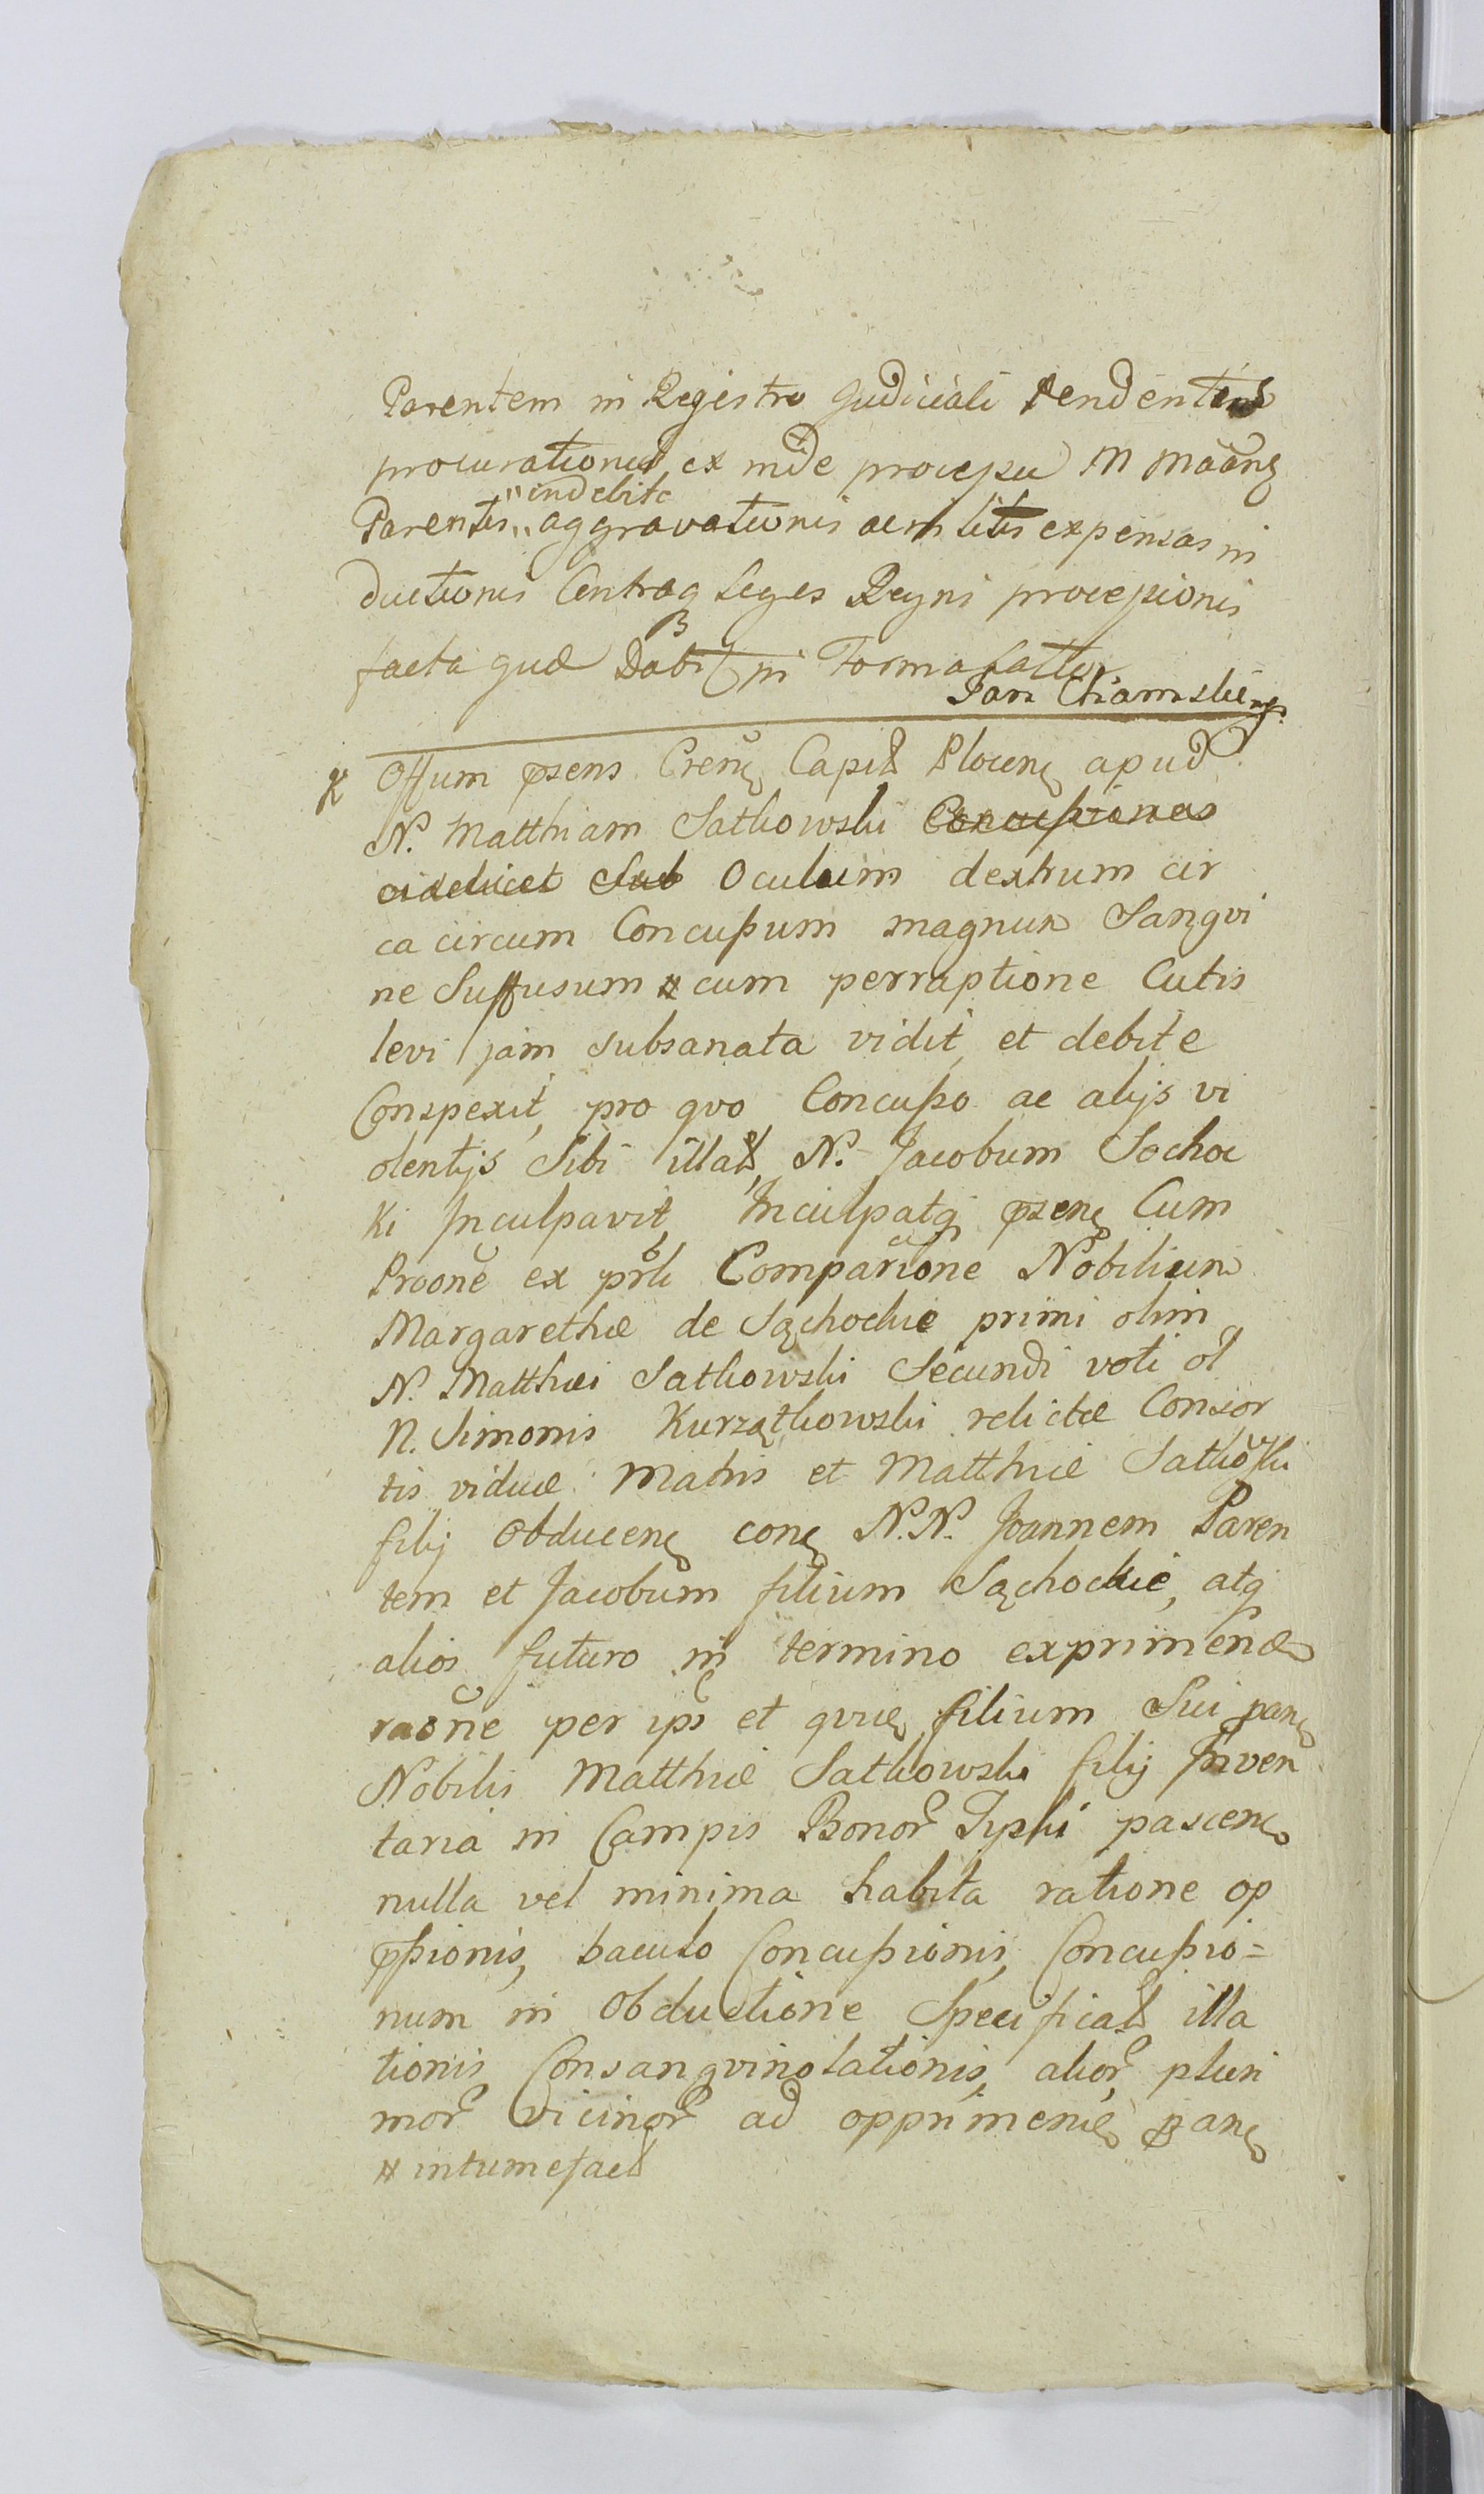 Parentem in Registro Judiciali pendentem
procurationis, ex inde processu M Maane
Parentis „indebite
aggravationis ac in litis expensas in
ductionis Contraq Leges Regni processionis
facta quæ Dabit in Forma latior
Jan Chamski mp.
Offum psens Crense Capit Plocen apud
N. Matthiam Satkowski Concussiones
videlicet Sub Oculum dextrum cir
ca circum Concussum magnum Sangvi
ne Suffusum # cum perraptione Cutis
levi jam subsanata vidit, et debite
Conspexit, pro qvo Concusso ac alijs vi
olentijs Sibi illat, N. Jacobum Sochac
ki Inculpavit, Inculpatq psen Cum
Proone ex prli Comparicione Nobilium
Margarethæ de Sąchockie primi olim
N. Matthiæi Satkowski Secundi voti ol
N. Simonis Kurzątkowski relictæ Consor
tis viduæ Matris et Matthiæ Satkowski
filij Obducen con N.N. Joannem Paren
tem et Jacobum filium Sąchockie, atq
alios futuro in termino exprimend
raone per ips et qvue filium Sui pan
Nobilis Matthiæ Satkowski filij Inven
taria in Campis Bonor Lyski pascen
nulla vel minima habita ratione op
pssionis, baculo Concussionis, Concussio=
num in Obductione Specificat illa
tionis Consangvinolationis, alior pluri
mor vicinor ad opprimend pan
# intumefact